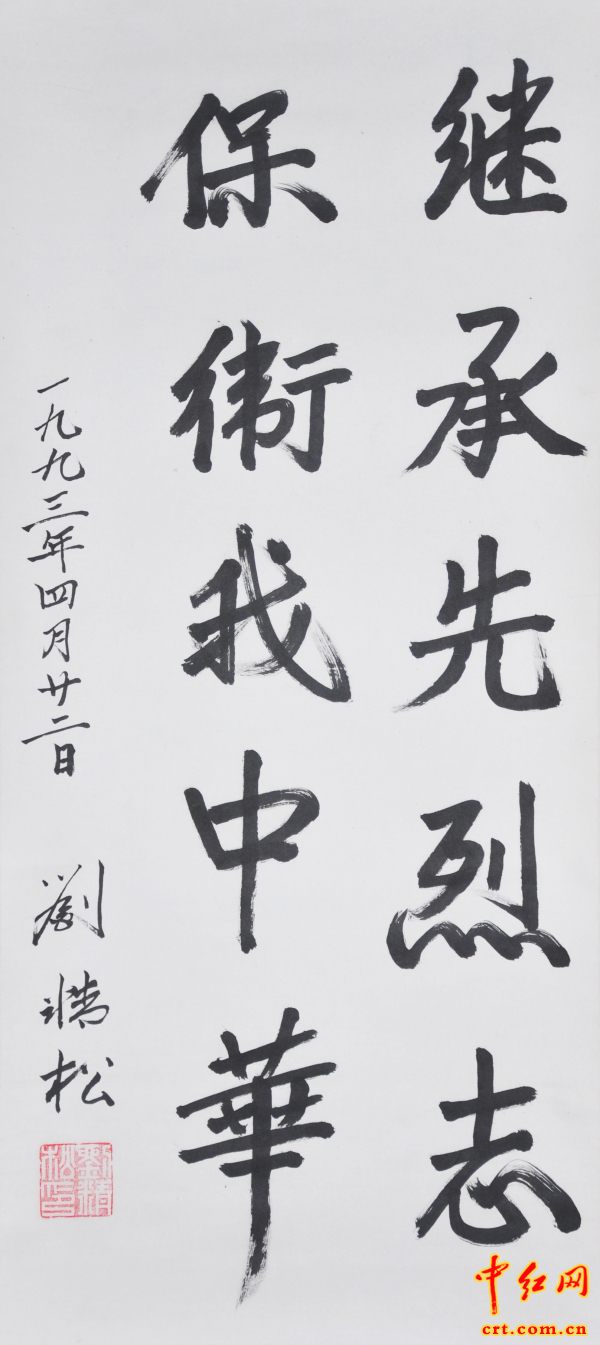 继承先烈志
保衛我中華
一九九三年四月廿二日 劉精松
劉精松印
中红网
crt.com.cn